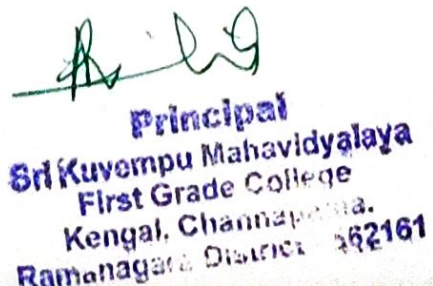 Principal
Sri Kuvempu Mahavidyalaya
First Grade College
Kengal, Channapatna.
Ramanagara District 562161